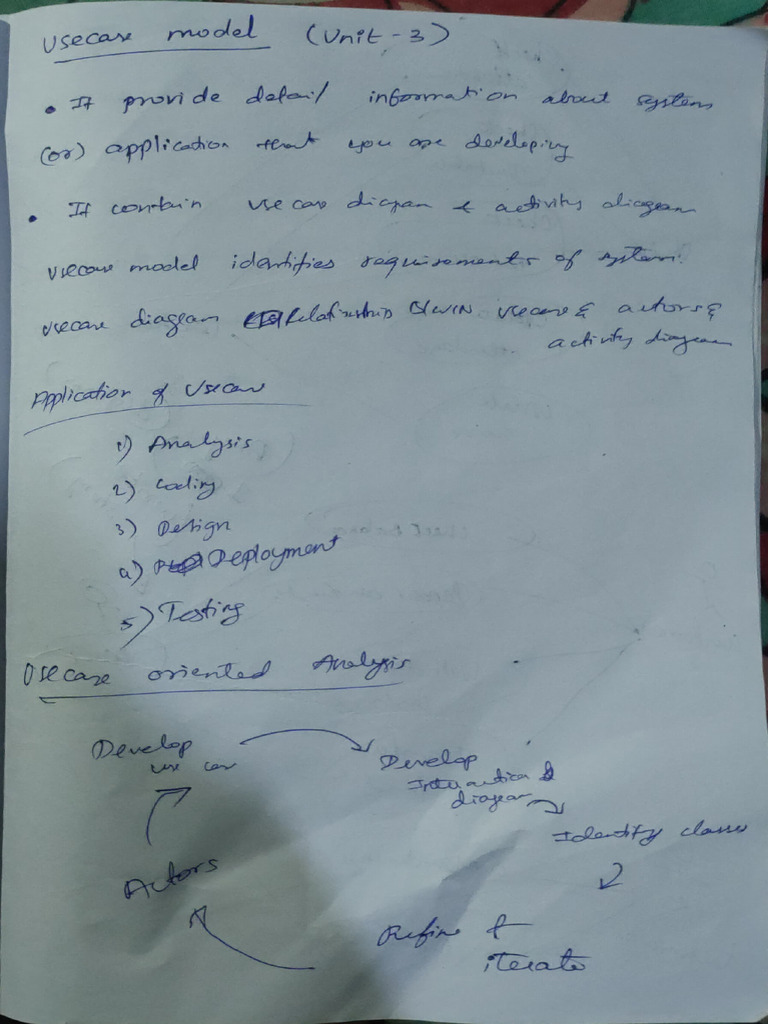 Usecase model (Unit-3)
• It provide detail information about system
(or) application that you are developing
• It contain use case diagram & activity diagram
usecase model identifies requirements of system.
usecase diagram Relationship b/w usecase & actors &
activity diagram
Application of Usecase
1) Analysis
2) Coding
3) Design
4) Deployment
5) Testing
Usecase oriented Analysis
Develop
use case
Develop
Interaction
diagram
Identify classes
Actors
Refine &
iterate